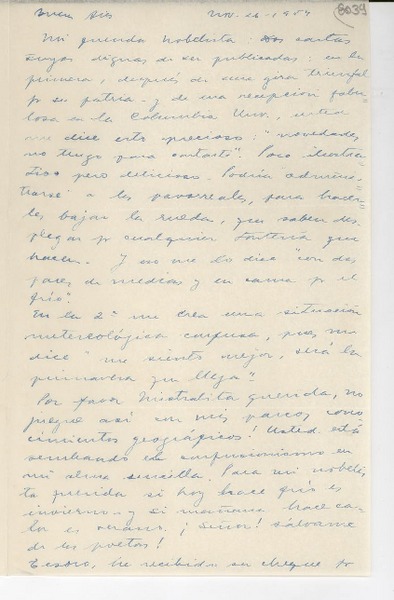 Buenos Aires Nov. 26 - 1954
8039
Mi querida nobelista: Dos cartas
suyas dignas de ser publicadas: en la
primera, después de una gira triunfal
p su patria y de una recepción fabu-
losa en la Columbia Univ. usted
me dice esto precioso: "novedades
no tengo para contarte". Poco
pero delicioso. Podría adminis-
trarse a los pavorreales, para hacer-
les bajar la rueda, que saben des-
plegar p cualquier tontería que
hacen. Y eso me lo dice "con dos
pares de medias y en cama p el
frío".
En la 2ª me crea una situación
metereológica confusa, pues, me
dice "me siento mejor, será la
primavera que llega"
Por favor Mistralita querida, no
juegue así con mis parcos cono-
cimientos geográficos! Usted está
sembrando el confusionismo en
mi alma sencilla. Para mi nobelis-
ta querida si hoy hace frío es
invierno y si mañana hace ca-
lor es verano. ¡Señor! Sálvame
de los poetas!
Tesoro, he recibido su cheque p